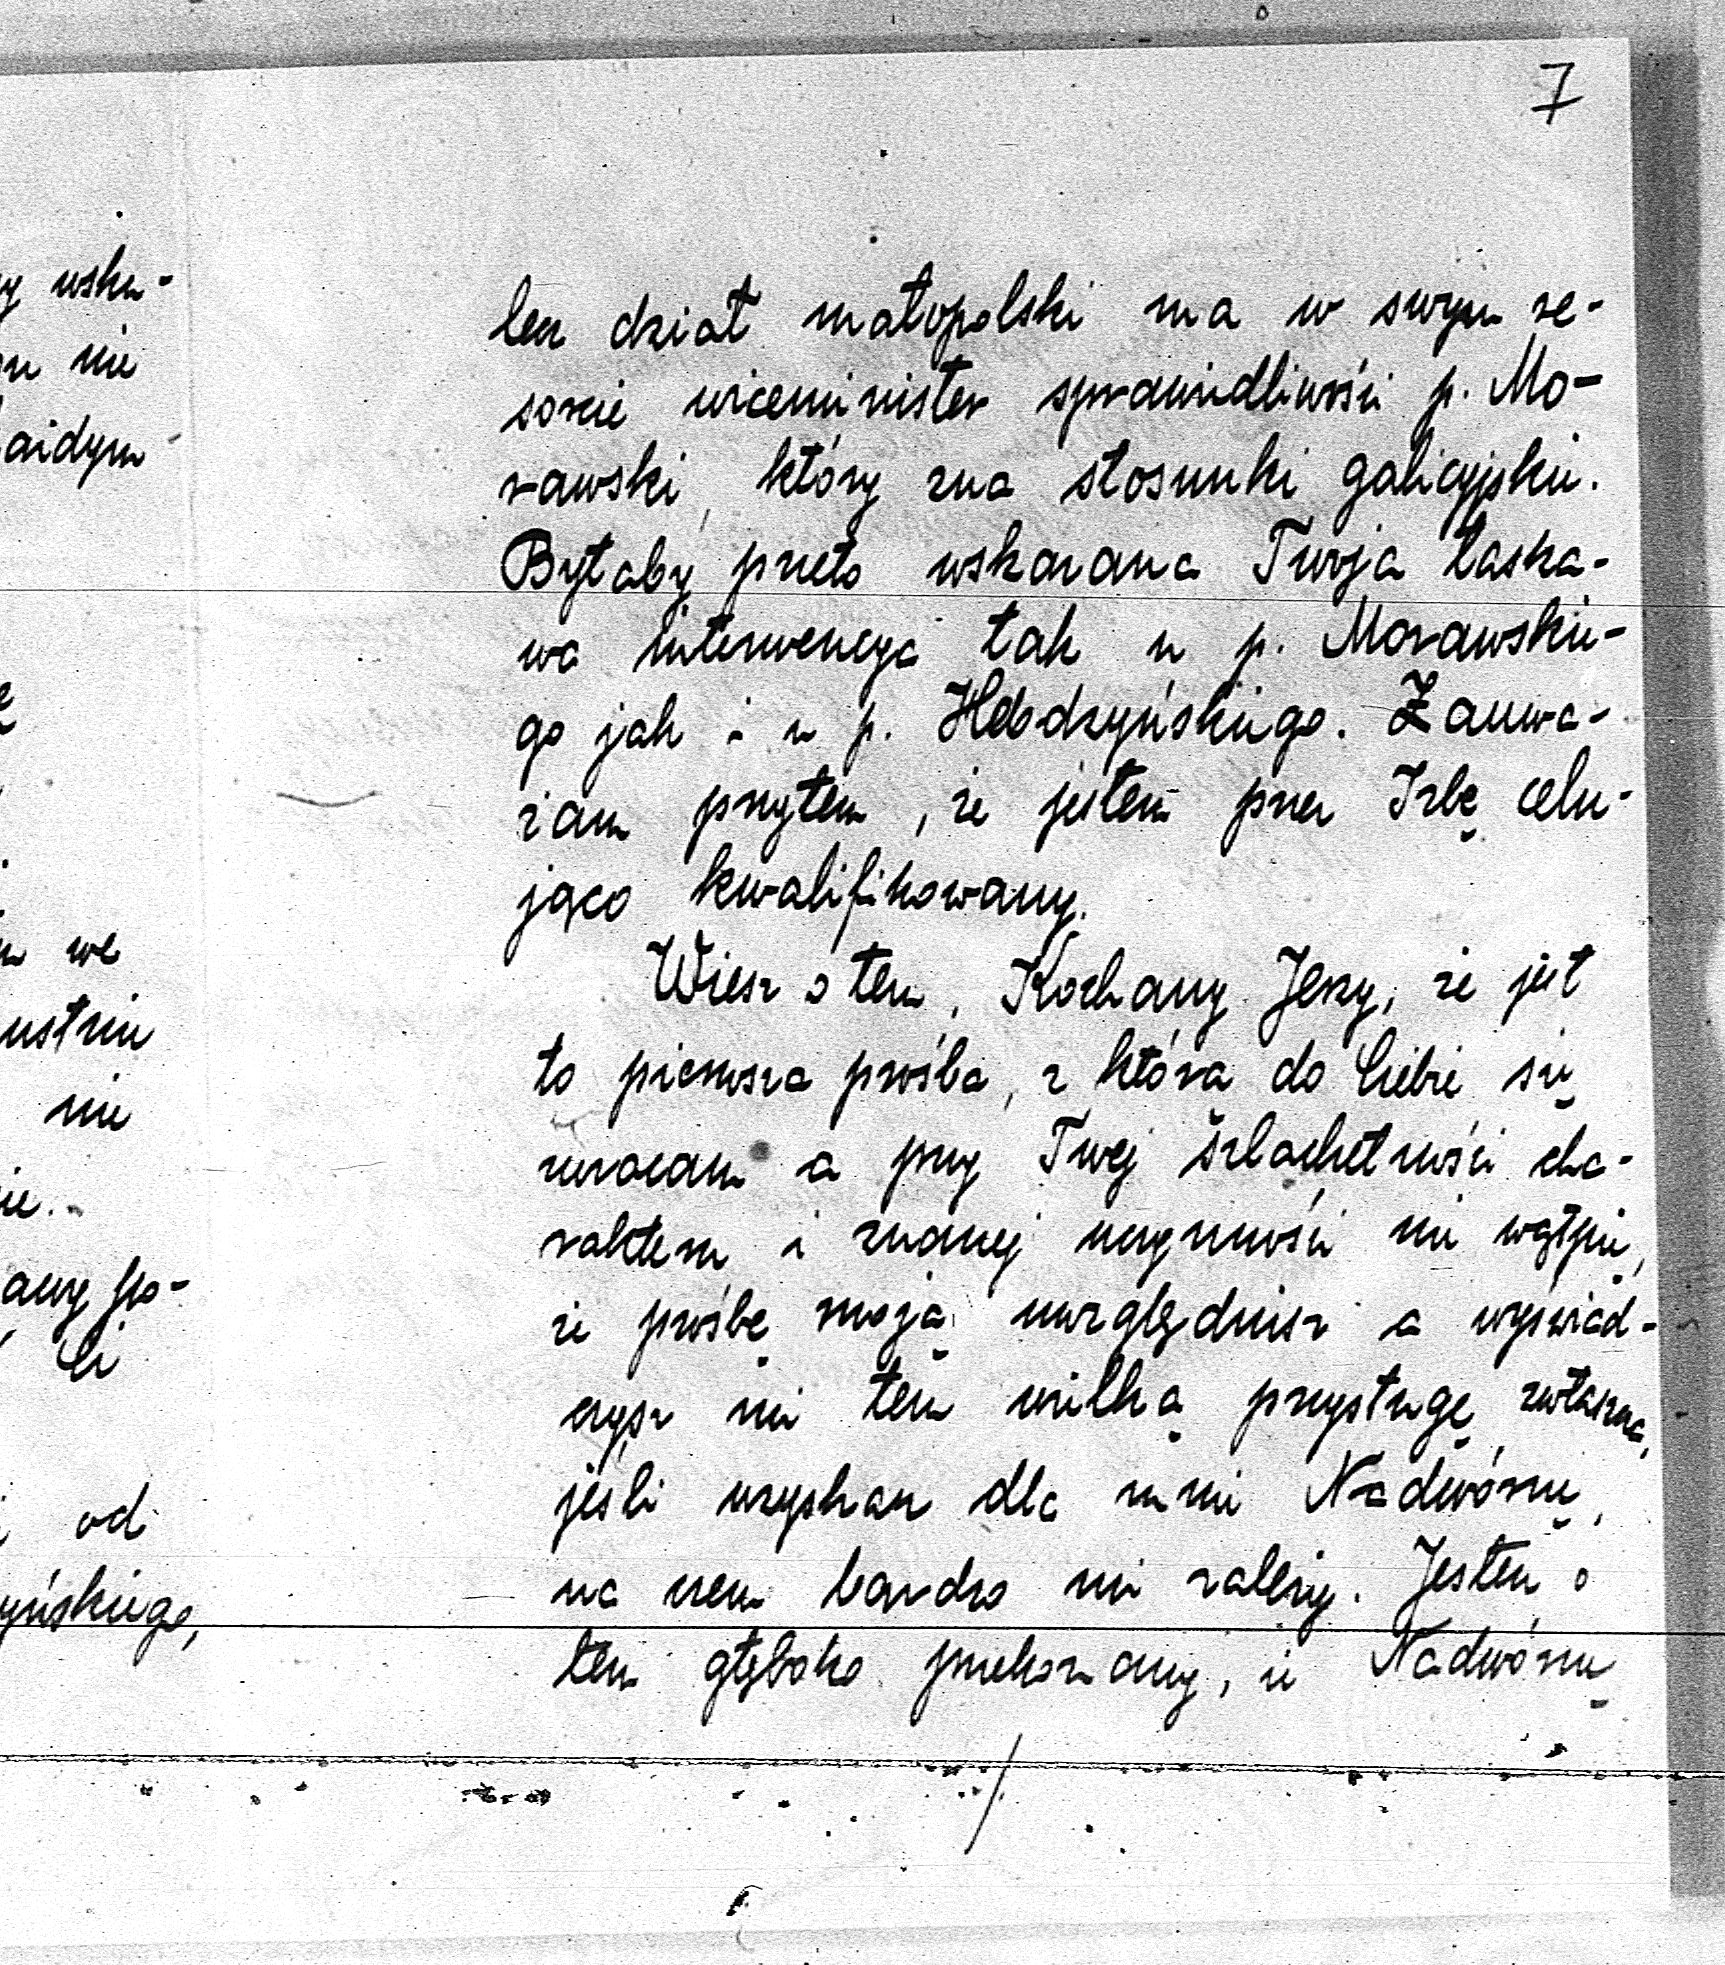 7
lecz dział małopolski ma w swym re-
sorcie wiceminister sprawiedliwości p. Mo-
rawski, który zna stosunki galicyjskie.
Byłaby przeto wskazana Twoja łaska-
wa interwencya tak u p. Morawskie-
go jak i u p. Hebdzyńskiego. Zauwa-
żam przytem, że jestem przez Izbę celu-
jąco kwalifikowany.
Wiesz o tem, Kochany Jerzy, że jest
to pierwsza prośba, z którą do Ciebie się
zwracam a przy Twej szlachetności cha-
rakteru i znanej uczynności nie wątpię,
że prośbę moją uwzględnisz a wyświad-
czysz mi tem wielką przysługę zwłaszcza,
jeśli uzyskam dla mnie Nadwórnę,
na czem bardzo mi zależy. Jestem o
tem głęboko przekonany, że Nadwórnę
./.
y wska-
nie
każdym
we
ustrie
nie
ie.
Ci
od
yńskiego,